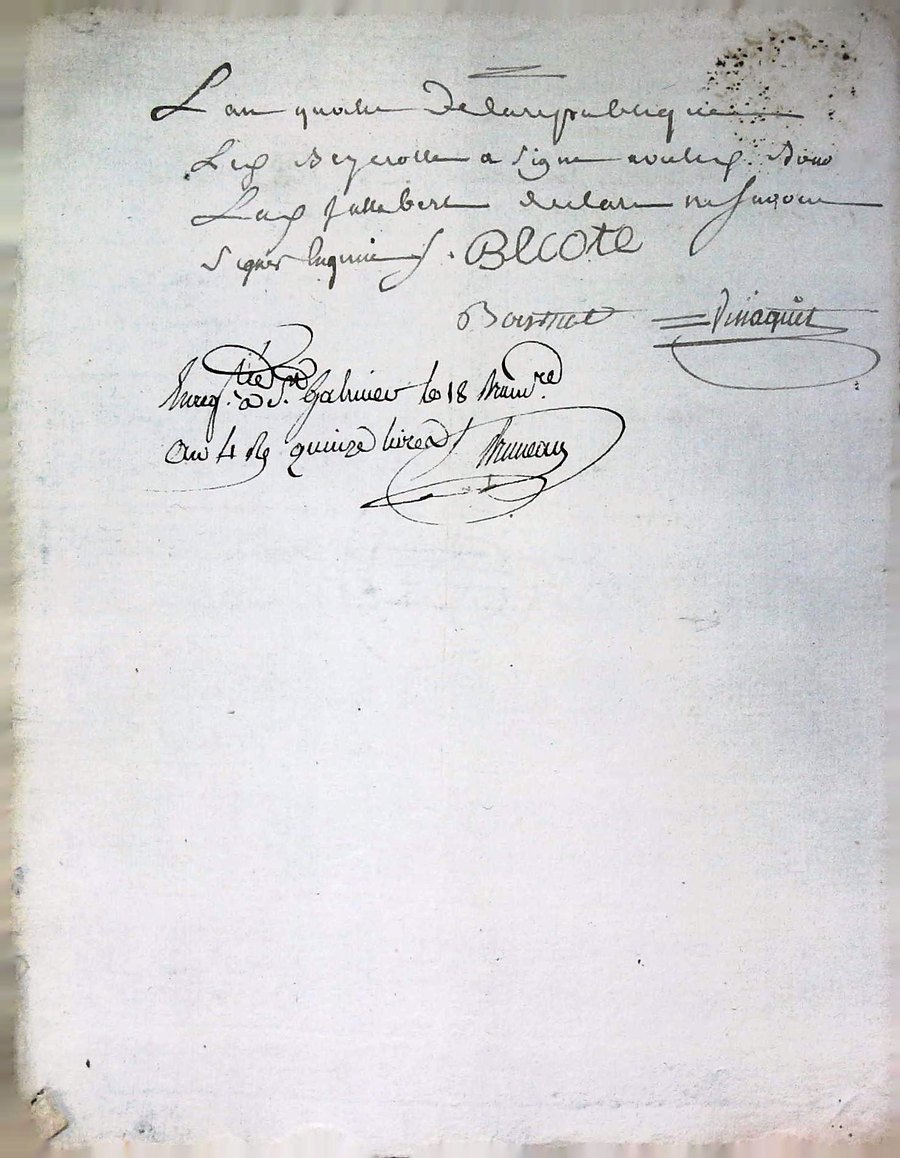 L'an quatre de la republique
Led Beyerolle a signe non led.
Led Jallebert declare ne savoir
signer enquis /. BECOTE
Boissnot Vinaquet
Enreg. tré à St. Galmier le 18 Brum.re
an 4 R quinze livres / Bruneau